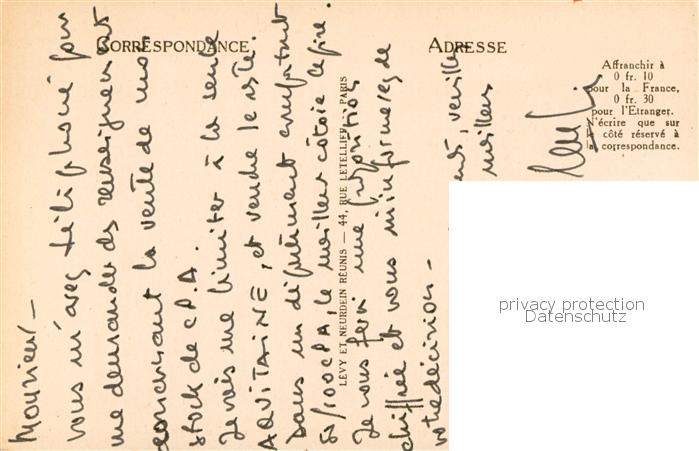 CORRESPONDANCE
ADRESSE
Affranchir à
0 fr. 10
pour la France,
0 fr. 30
pour l'Etranger.
N'écrire que sur
le côté réservé à
la correspondance.
LÉVY ET NEURDEIN RÉUNIS — 44, RUE LETELLIER — PARIS
Monsieur —
vous m'avez téléphoné pour
me demander des renseignements
concernant la vente de mon
stock de C.P.A
Je vais me limiter à la seule
AQUITAINE, et vendre le reste.
Dans un département comportant
80/100 CPA, le meilleur côtoie le pire.
Je vous ferai une proposition
chiffrée et vous m'informerez de
votre décision —
veuillez
meilleurs
privacy protection
Datenschutz